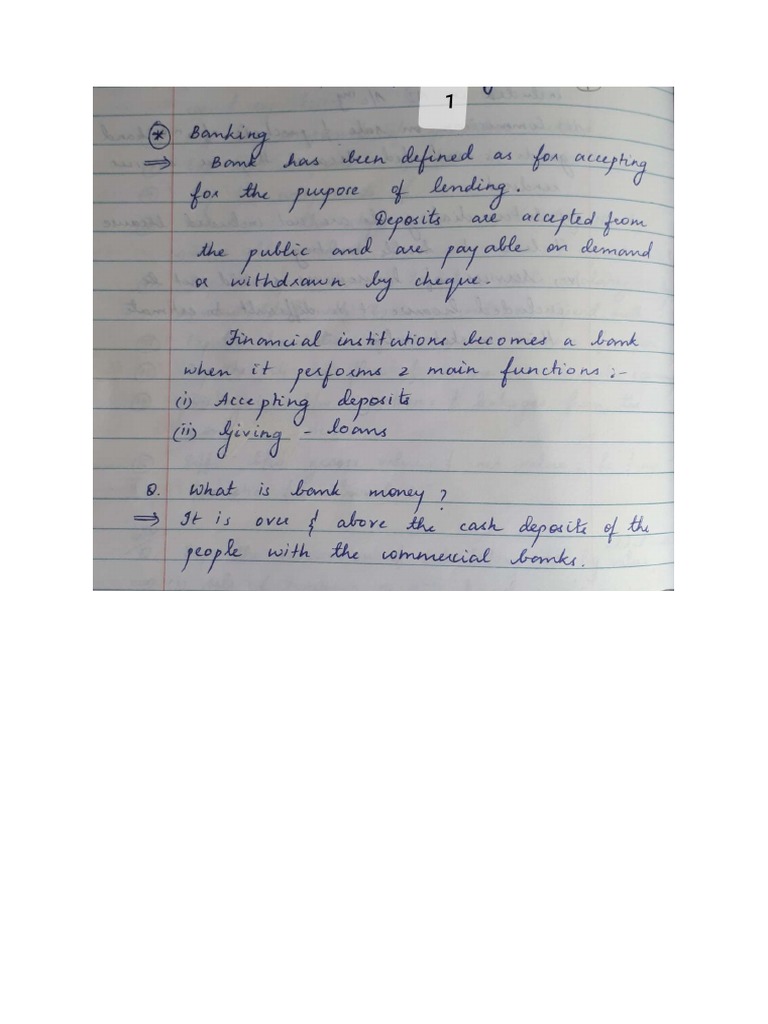 1
* Banking
⇒ Bank has been defined as for accepting
for the purpose of lending.
Deposits are accepted from
the public and are payable on demand
or withdrawn by cheque.
Financial institutions becomes a bank
when it performs 2 main functions :-
(i) Accepting deposits
(ii) Giving - loans
Q. What is bank money?
⇒ It is over & above the cash deposits of the
people with the commercial banks.